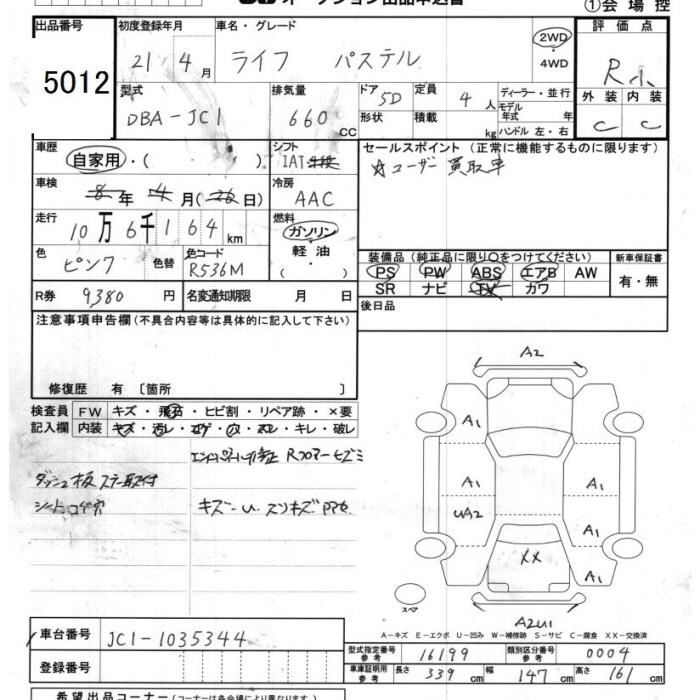 オークション出品申込書
①会場控
出品番号 5012
初度登録年月 21年 4月
車名・グレード ライフ パステル
2WD・4WD
評価点 R小
型式 DBA-JC1
排気量 660 CC
ドア 5D 形状
定員 4人 積載 kg
ディーラー・並行
モデル年式 年
ハンドル 左・右
外装 C 内装 C
車歴 自家用・( )
シフト IAT
セールスポイント(正常に機能するものに限ります)
☆ユーザー買取車
車検 8年 4月(26日)
冷房 AAC
走行 10万6千164km
燃料 ガソリン・軽油・
色 ピンク 色替
色コード R536M
装備品(純正品に限り○をつけてください)
新車保証書
PS PW ABS エアB AW
SR ナビ TV カワ
有・無
R券 9,380円
名変通知期限 月 日
後日品
注意事項申告欄(不具合内容等は具体的に記入して下さい)
修復歴 有〔箇所 〕
検査員記入欄
FW キズ・飛石・ヒビ割・リペア跡・×要
内装 キズ・汚レ・コゲ・穴・スレ・キレ・破レ
ダッシュ板ステー取付
シートコゲ穴
キズ-U スリキズ
A2
A1
A1 A1
UA2 A1
XX
A1
スペア
A2U1
A-キズ E-エクボ U-凹み W-補修跡 S-サビ C-腐食 XX-交換済
車台番号 JC1-1035344
登録番号
型式指定番号参考 16199
類別区分番号参考 0004
車庫証明用参考 長さ 339cm 幅 147cm 高さ 161cm
希望出品コーナー(コーナーは各会場により異なります)